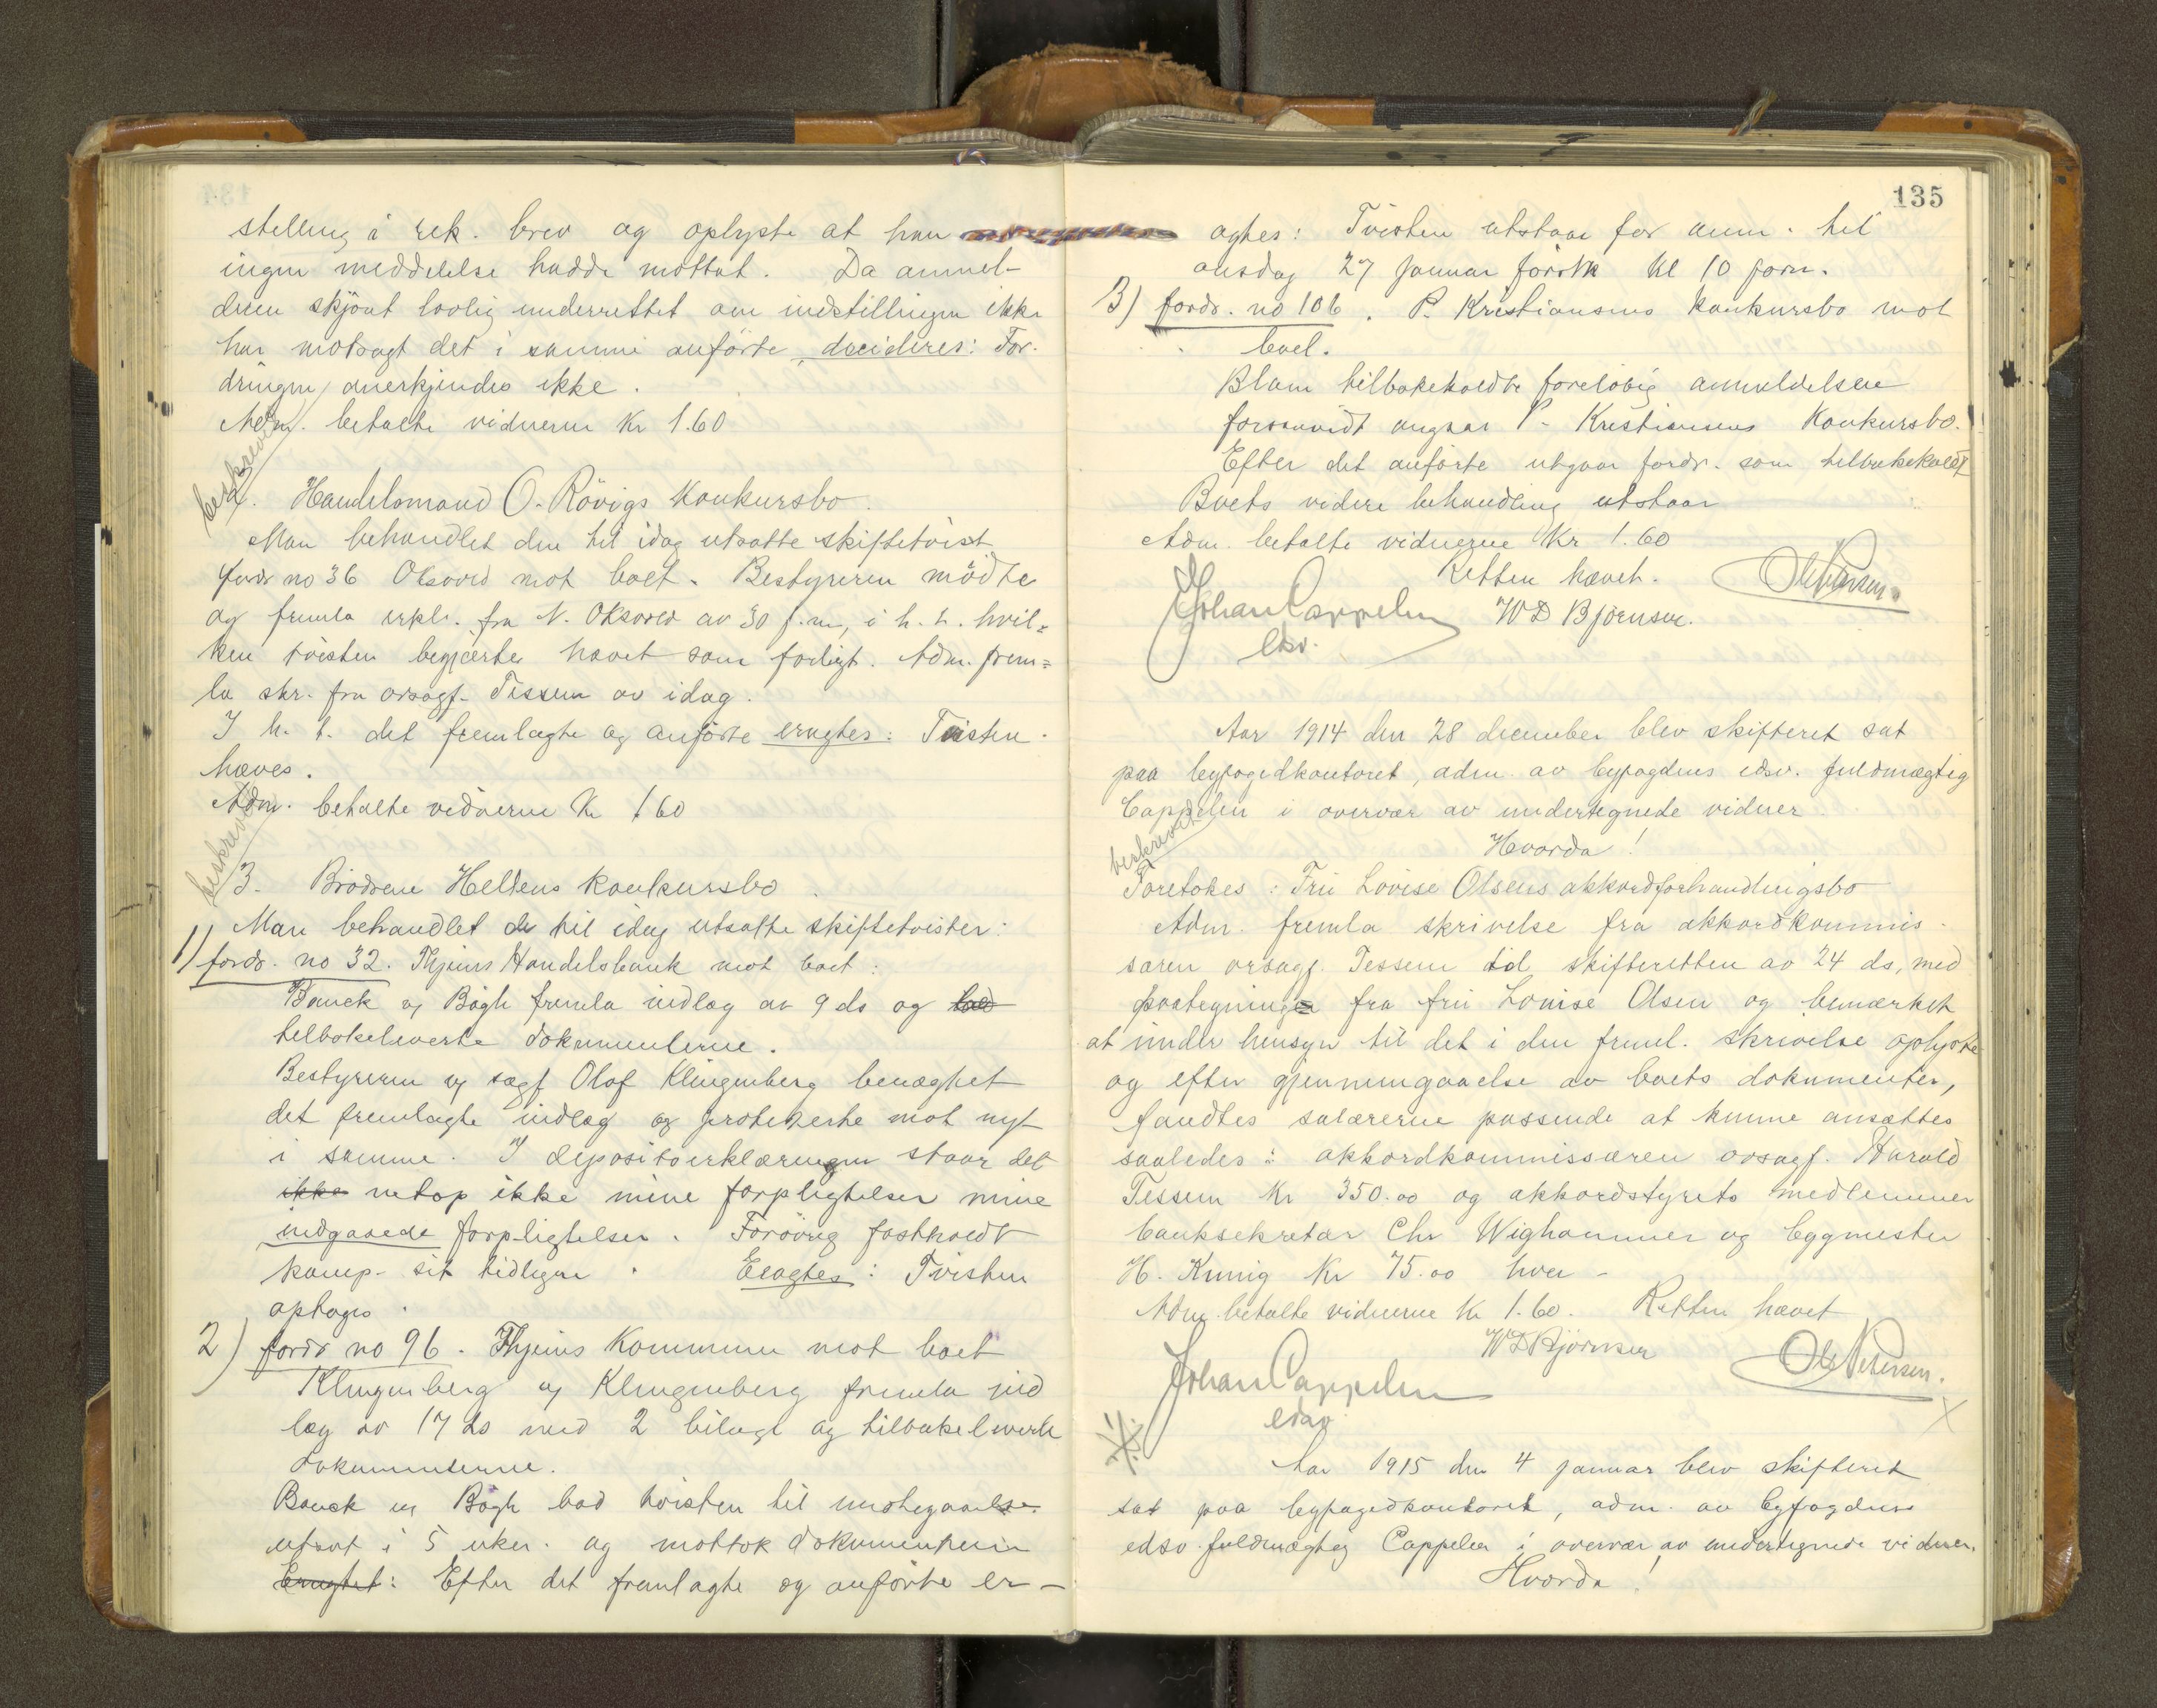 stelling i rek. brev og oplyste at han
ingen meddelelse hadde mottat. Da anmel-
deren skjönt lovlig underrettet om indstillingen ikke
har motsagt det i samme anförte, decideres: For-
dringen anerkjendes ikke.
Adm. betalte vidnerne Kr 1.60
beskrevet
2. Handelsmand O. Rövigs Konkursbo.
Man behandlet den til idag utsatte skiftetvist
fordr no 36 Oksvold mot boet. Bestyreren mödte
og fremla erkl. fra N. Oksvold av 30 f.m., i h. t. hvil=
ken tvisten begjærtes hævet som forligt. Adm. frem=
la skr. fra orsagf. Tessem av idag.
I h. t. det fremlagte og anförte eragtes: Tvisten
hæves.
Adm. betalte vidnerne Kr 1.60
beskrevet
3. Brödrene Hellens konkursbo.
Man behandlet de til idag utsatte skiftetvister:
1) fordr. no 32. Thjems Handelsbank mot boet:
Bauck og Bögh fremla indlæg av 9 ds og bad
tilbakeleverte dokumenterne.
Bestyreren og sagf Olaf Klingenberg benægtet
det fremlagte indlæg og protesterte mot nyt
i samme. I depositoerklæringen staar det
ikke netop ikke mine forpligtelser mine
indgaaede forpligtelser. Forövrig fastholdt
komp. sit tidligere. Eragtes: Tvisten
optages.
2) fordr no 96. Thjems Kommune mot boet
Klingenberg og Klingenberg fremla ind
læg av 17 ds med 2 bilage og tilbakeleverte
dokumenterne.
Bauck og Bögh bad tvisten til imötegaaelse
utsat i 5 uker. og mottok dokumenterne
Eragtet: Efter det fremlagte og anförte er-
135
agtes: Tvisten utstaar for anm. til
onsdag 27 januar förstk kl 10 form.
3) fordr. no 106. P. Kristiansens konkursbo mot
boet.
Blom tilbakeholdte forelöbig anmeldelsen
forsaavidt angaar P. Kristiansens Konkursbo.
Efter det anförte utgaar fordr. som tilbakekaldt
Boets videre behandling utstaar
Adm. betalte vidnerne Kr 1.60
Retten hævet.
Johan Cappelen W D Björnsen. Ole Petersen.
edsv.
Aar 1914 den 28 december blev skifteret sat
paa byfogedkontoret, adm. av byfogdens edsv. fuldmægtig
Cappelen i overvær av undertegnede vidner
Hvorda!
beskrevet
Foretokes: Fru Lovise Olsens akkordforhandlingsbo
Adm. fremla skrivelse fra akkordkommis-
særen orsagf. Tessem til skifteretten av 24 ds, med
paategning fra fru Louise Olsen og bemærket
at under hensyn til det i den freml. skrivelse oplyste
og efter gjennemgaaelse av boets dokumenter,
fandtes salærerne passende at kunne ansættes
saaledes: akkordkommissæren orsagf. Harald
Tessem Kr 350.00 og akkordstyrets medlemmer
banksekretær Chr Wighammer og bygmester
H. Kunig Kr 75.00 hver.
Adm. betalte vidnerne Kr 1.60. Retten hævet
W D Björnsen Ole Petersen.
Johan Cappelen
edsv.
Aar 1915 den 4 januar blev skifteret
sat paa byfogedkontoret, adm. av byfogdens
edsv. fuldmægtig Cappelen i overvær av undertegnede vidner.
Hvorda!